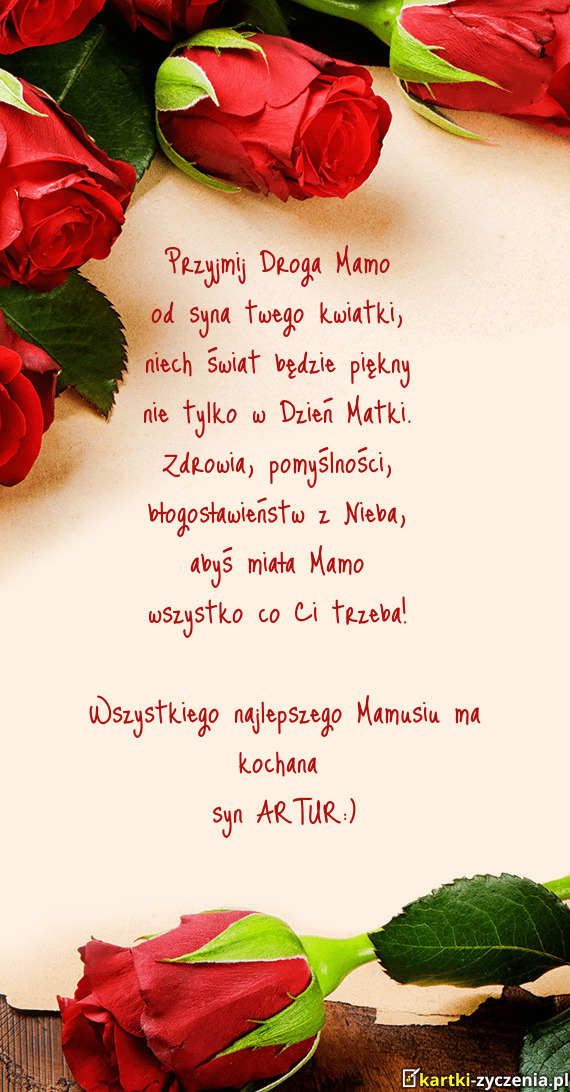 Przyjmij Droga Mamo
od syna twego kwiatki,
niech świat będzie piękny
nie tylko w Dzień Matki.
Zdrowia, pomyślności,
błogosławieństw z Nieba,
abyś miała Mamo
wszystko co Ci trzeba!
Wszystkiego najlepszego Mamusiu ma
kochana
syn ARTUR:)
kartki-zyczenia.pl